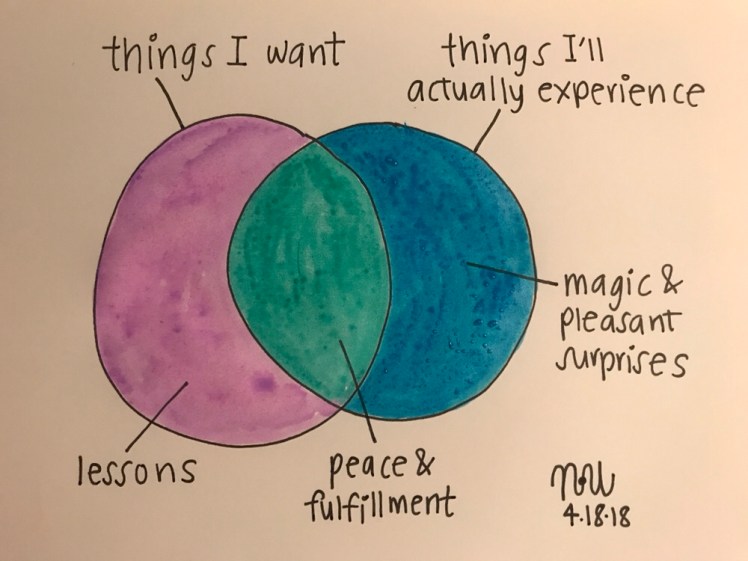 things I want
things I'll
actually experience
magic &
pleasant
surprises
lessons
peace &
fulfillment
4.18.18